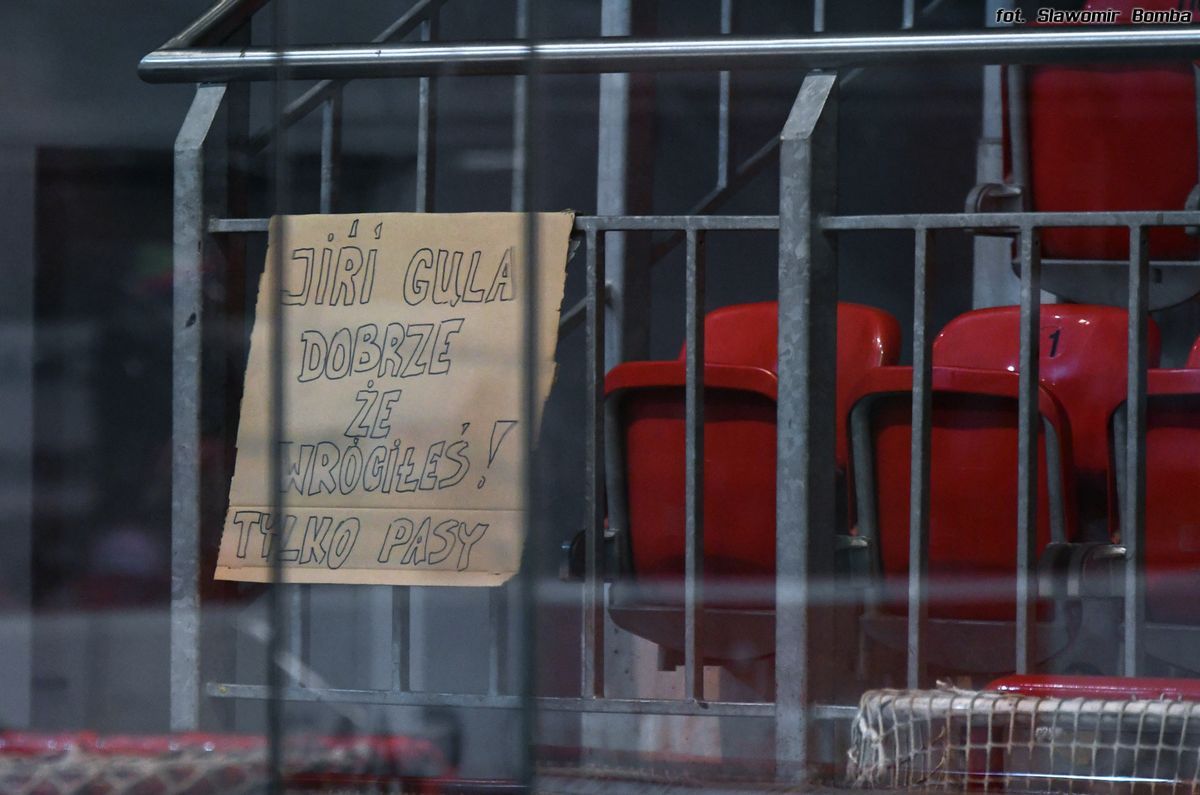 fot. Sławomir Bomba
JIŘÍ GULA
DOBRZE
ŻE
WRÓCIŁEŚ!
TYLKO PASY
1